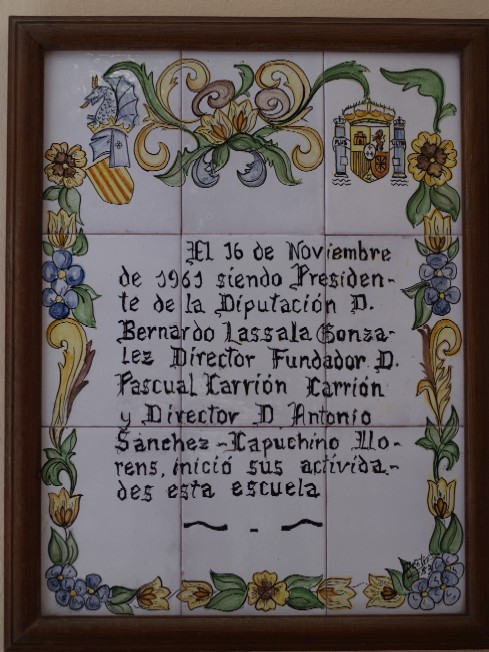 PLUS ULTRA
El 16 de Noviembre
de 1961 siendo Presiden-
te de la Diputación D.
Bernardo Lassala Gonza-
lez Director Fundador D.
Pascual Carrión Carrión
y Director D Antonio
Sánchez-Capuchino Llo-
rens, inició sus activida-
des esta escuela